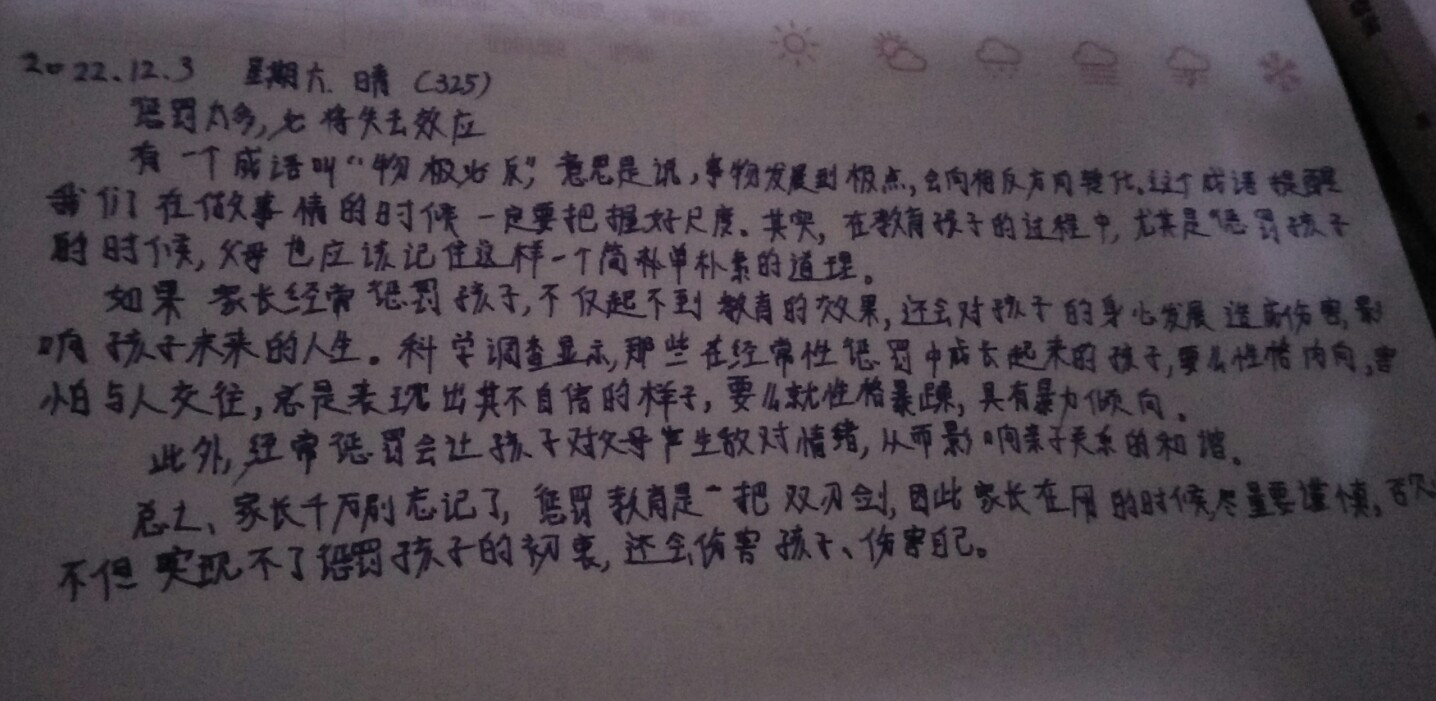 2022.12.3 星期六 晴 (325)
惩罚太多,必将失去效应
有一个成语叫“物极必反”,意思是说,事物发展到极点,会向相反方向转化。这个成语提醒
我们在做事情的时候一定要把握好尺度。其实,在教育孩子的过程中,尤其是惩罚孩子
的时候,父母也应该记住这样一个简单朴素的道理。
如果家长经常惩罚孩子,不仅起不到教育的效果,还会对孩子的身心发展造成伤害,影
响孩子未来的人生。科学调查显示,那些在经常性惩罚中成长起来的孩子,要么性格内向,害
怕与人交往,总是表现出其不自信的样子,要么就性格暴躁,具有暴力倾向。
此外,经常惩罚会让孩子对父母产生敌对情绪,从而影响亲子关系的和谐。
总之、家长千万别忘记了,惩罚教育是一把双刃剑,因此家长在用的时候,尽量要谨慎,否则
不但实现不了惩罚孩子的初衷,还会伤害孩子、伤害自己。